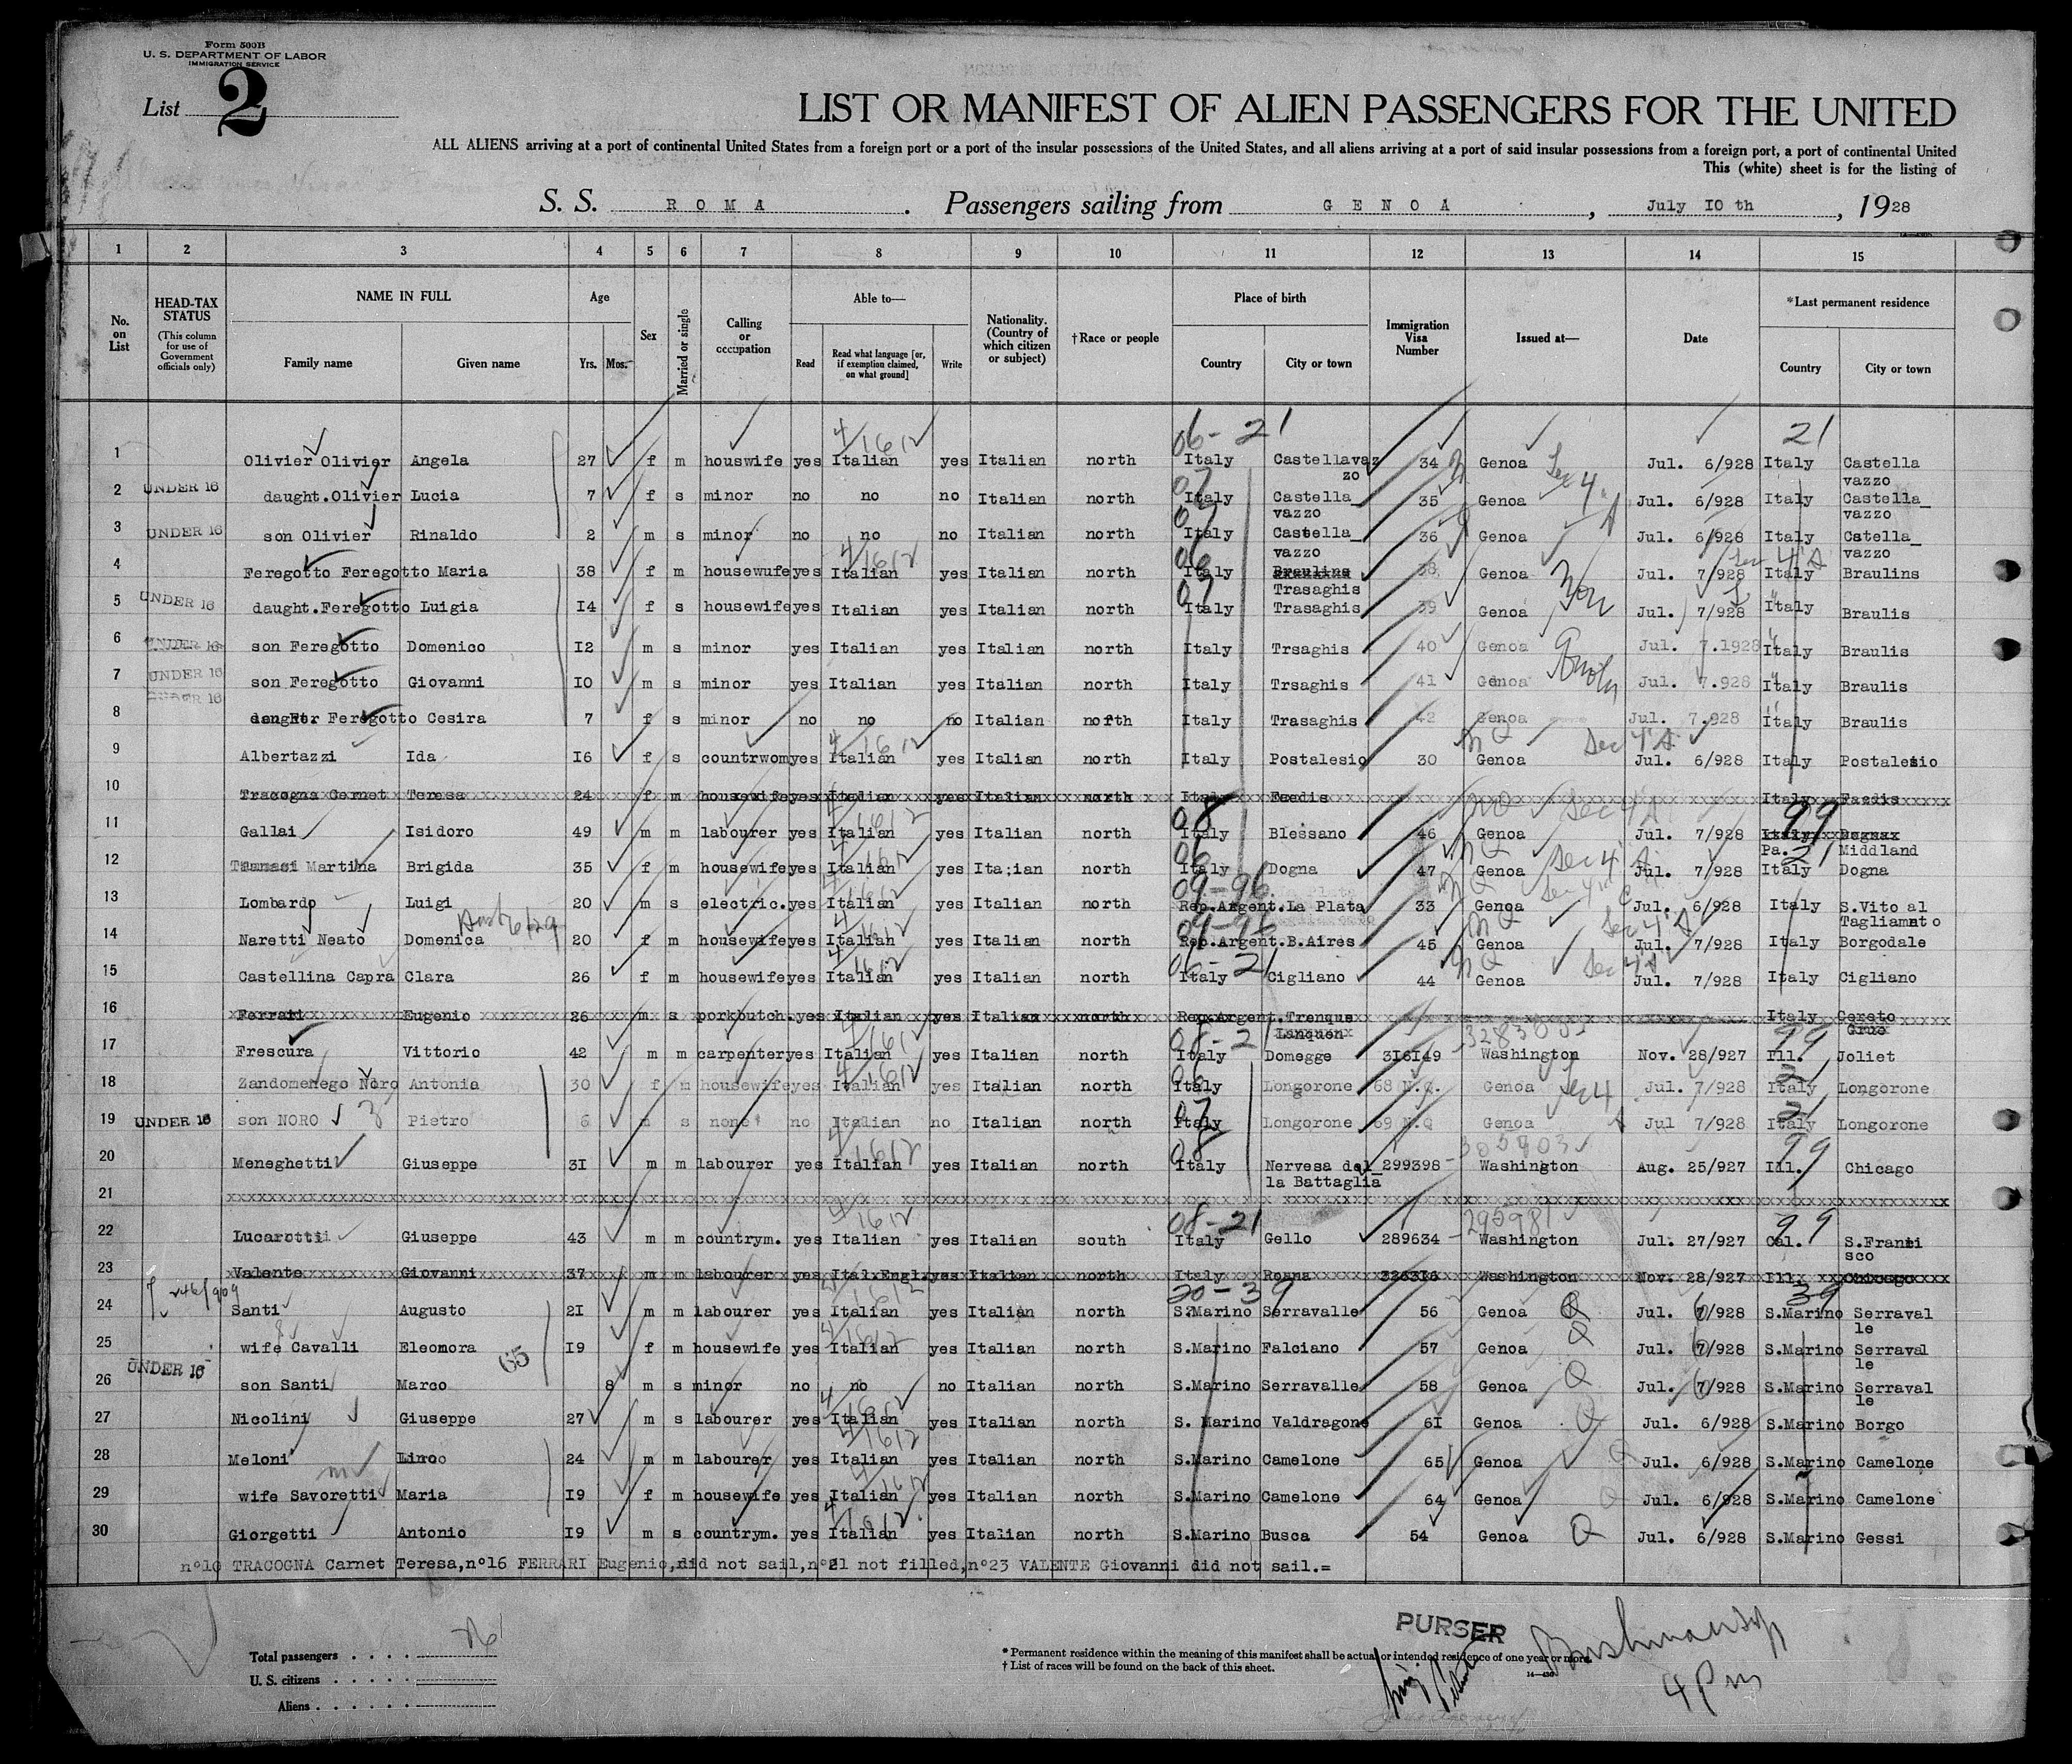 Form 500B
U. S. DEPARTMENT OF LABOR
IMMIGRATION SERVICE
List 2
LIST OR MANIFEST OF ALIEN PASSENGERS FOR THE UNITED
ALL ALIENS arriving at a port of continental United States from a foreign port or a port of the insular possessions of the United States, and all aliens arriving at a port of said insular possessions from a foreign port, a port of continental United
This (white) sheet is for the listing of
S. S. ROMA. Passengers sailing from GENOA, July 10 th, 1928
1 2 3 4 5 6 7 8 9 10 11 12 13 14 15
No. on List
HEAD-TAX STATUS
(This column for use of Government officials only)
NAME IN FULL
Family name Given name
Age
Yrs. Mos.
Sex
Married or single
Calling or occupation
Able to—
Read
Read what language [or, if exemption claimed, on what ground]
Write
Nationality. (Country of which citizen or subject)
†Race or people
Place of birth
Country City or town
Immigration Visa Number
Issued at—
Date
*Last permanent residence
Country City or town
06-21 21
1 Olivier Olivier Angela 27 f m houswife yes Italian yes Italian north Italy Castellavaz zo 34 Genoa Jul. 6/928 Italy Castella vazzo
2 UNDER 16 daught.Olivier Lucia 7 f s minor no no no Italian north Italy Castella_ vazzo 35 Genoa Sec 4 Jul. 6/928 Italy Castella_ vazzo
3 UNDER 16 son Olivier Rinaldo 2 m s minor no no no Italian north Italy Castella_ vazzo 36 Genoa Jul. 6/928 Italy Cstella_ vazzo
4 Feregotto Feregotto Maria 38 f m housewufe yes Italian yes Italian north Italy Braulins Trasaghis 38 Genoa Jul. 7/928 Italy Braulins
5 UNDER 16 daught.Feregotto Luigia 14 f s housewife yes Italian yes Italian north Italy Trasaghis 39 Genoa Jul. 7/928 Italy Braulis
6 UNDER 16 son Feregotto Domenico 12 m s minor yes Italian yes Italian north Italy Trsaghis 40 Genoa Jul. 7.1928 Italy Braulis
7 UNDER 16 son Feregotto Giovanni 10 m s minor yes Italian yes Italian north Italy Trsaghis 41 Genoa Jul. 7.928 Italy Braulis
UNDER 16
8 Feregotto Cesira 7 f s minor no no no Italian north Italy Trasaghis 42 Genoa Jul. 7.928 Italy Braulis
9 Albertazzi Ida 16 f s countrwom yes Italian yes Italian north Italy Postalesio 30 Genoa Jul. 6/928 Italy Postalesio
10 Tracogna Cernet Teresa 24 f m housewife yes Italian yes Italian north Italy Faedis Italy Faedis
11 Gallai Isidoro 49 m m labourer yes Italian yes Italian north Italy Blessano 46 Genoa Jul. 7/928 Pa. Middland
12 Martina Brigida 35 f m housewife yes Italian yes Ita;ian north Italy Dogna 47 Genoa Jul. 7/928 Italy Dogna
13 Lombardo Luigi 20 m s electric. yes Italian yes Italian north Rep.Argent. La Plata 33 Genoa Jul. 6/928 Italy S.Vito al Tagliamnto
14 Naretti Neato Domenica 20 f m housewife yes Italian yes Italian north Rep.Argent. B.Aires 45 Genoa Jul. 7/928 Italy Borgodale
15 Castellina Capra Clara 26 f m housewife yes Italian yes Italian north Italy Cigliano 44 Genoa Jul. 7/928 Italy Cigliano
16 Ferrari Eugenio 26 m s porkbutch. yes Italian yes Italian north Rep.Argent. Trenque Lanquen Italy Cereto Gruo
17 Frescura Vittorio 42 m m carpenter yes Italian yes Italian north Italy Domegge 316149 Washington Nov. 28/927 Ill. Joliet
18 Zandomenego Noro Antonia 30 f m housewife yes Italian yes Italian north Italy Longorone 68 N.Q. Genoa Sec 4 Jul. 7/928 Italy Longorone
19 UNDER 16 son NORO Pietro 6 m s none no Italian no Italian north Italy Longorone 69 N.Q Genoa Jul 7/928 Italy Longorone
20 Meneghetti Giuseppe 31 m m labourer yes Italian yes Italian north Italy Nervesa del_ la Battaglia 299398 Washington Aug. 25/927 Ill. Chicago
21
22 Lucarotti Giuseppe 43 m m countrym. yes Italian yes Italian south Italy Gello 289634 Washington Jul. 27/927 Cal. sco
23 Valente Giovanni 37 m m labourer yes Ital.Engl. yes Italian north Italy Roana 326316 Washington Nov. 28/927 Ill. Chicago
20-39 39
24 Santi Augusto 21 m m labourer yes Italian yes Italian north S.Marino Serravalle 56 Genoa Jul. 6/928 S.Marino Serraval le
25 wife Cavalli Eleonora 19 f m housewife yes Italian yes Italian north S.Marino Falciano 57 Genoa Jul. 7/928 S.Marino Serraval le
65
26 UNDER 16 son Santi Marco 8 m s minor no no no Italian north S.Marino Serravalle 58 Genoa Jul. 7/928 S.Marino Serraval le
27 Nicolini Giuseppe 27 m s labourer yes Italian yes Italian north S. Marino Valdragone 61 Genoa Jul. 6/928 S.Marino Borgo
28 Meloni Lino 24 m m labourer yes Italian yes Italian north S.Marino Camelone 65 Genoa Jul. 6/928 S.Marino Camelone
29 wife Savoretti Maria 19 f m housewife yes Italian yes Italian north S.Marino Camelone 64 Genoa Jul. 6/928 S.Marino Camelone
30 Giorgetti Antonio 19 m s countrym. yes Italian yes Italian north S.Marino Busca 54 Genoa Jul. 6/928 S.Marino Gessi
n°10 TRACOGNA Carnet Teresa,n°16 FERRARI Eugenio,did not sail,n°21 not filled,n°23 VALENTE Giovanni did not sail.=
Total passengers
U. S. citizens
Aliens
* Permanent residence within the meaning of this manifest shall be actual or intended residence of one year or more.
† List of races will be found on the back of this sheet.
PURSER
4 Pm